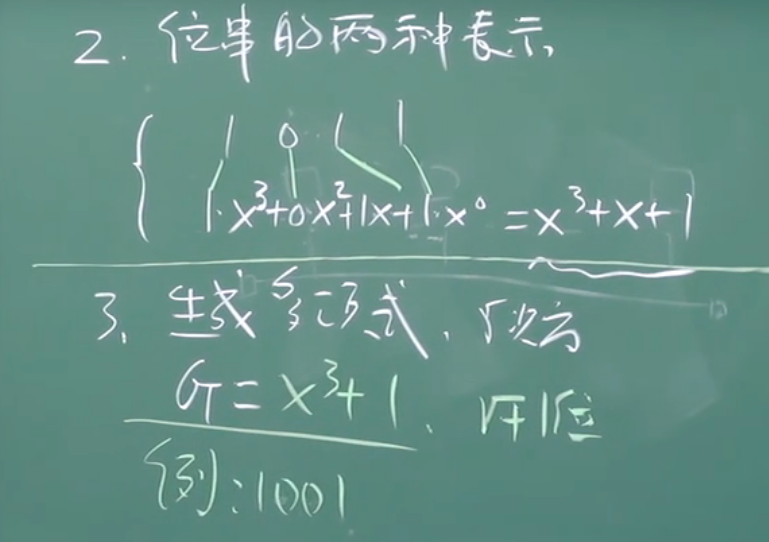 2. 位串的两种表示
1 0 1 1
1·x³+0x²+1x+1·x⁰ = x³+x+1
3. 生成多项式, r次方
G = x³+1. r+1位
例:1001